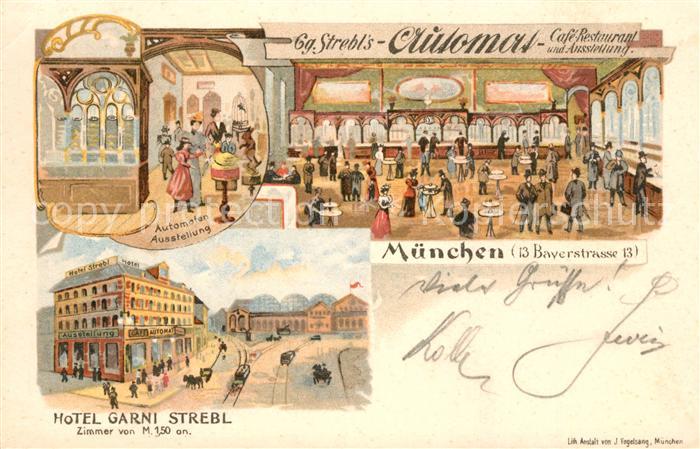 Gg. Strebl's - Automat - Café-Restaurant
und Ausstellung.
Automaten
Ausstellung
München (13 Bayerstrasse 13)
Viele Grüße!
Hotel Strebl Hotel
Ausstellung CAFÉ AUTOMAT
HOTEL GARNI STREBL
Zimmer von M. 1,50 an.
Lith. Anstalt von J. Vogelsang, München